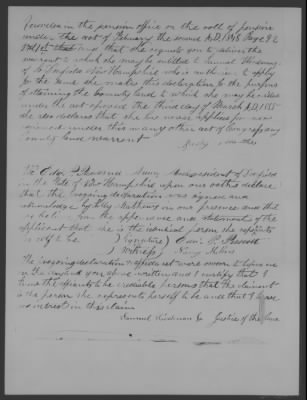 Provision in the pension office on the roll of pension
under the act of February the second A.D. 1848 Page 92
and that she requests you to deliver the
warrant to which she may be entitled to Samuel
of Deerfield New Hampshire who is authorized to apply
for the same she makes this declaration for the purpose
of obtaining the bounty land to which she may be entitled
under the act approved the third day of March A.D. 1855
she also declares that she has never applied for nor
received under this or any other act of Congress any
bounty land warrant
Polly
We
residents of Deerfield
in the State of New Hampshire upon our oaths declare
that the foregoing declaration was signed and
acknowledged by Polly Mathews in our presence and that
we believe from the appearance and statements of the
applicant that she is the identical person she represents
herself to be ) Signature )
) Witness )
The foregoing declaration & affidavit were sworn to before me
on the day and year above written and I certify that I
know the affiants to be credible persons that the claimant
is the person she represents herself to be and that I have
no interest in this claim
Samuel Justice of the Peace